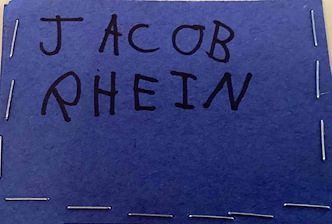 JACOB
RHEIN